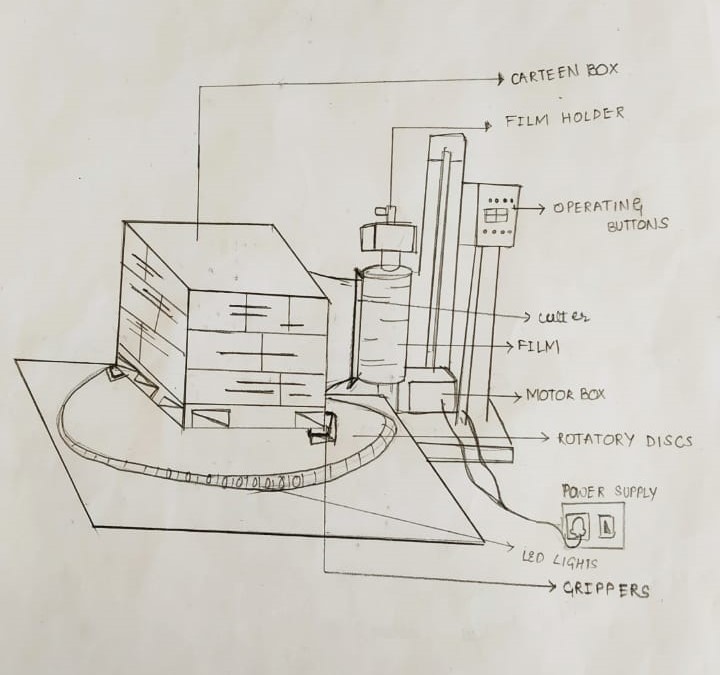 CARTEEN BOX
FILM HOLDER
OPERATING
BUTTONS
cutter
FILM
MOTOR BOX
ROTATORY DISCS
POWER SUPPLY
LED LIGHTS
GRIPPERS